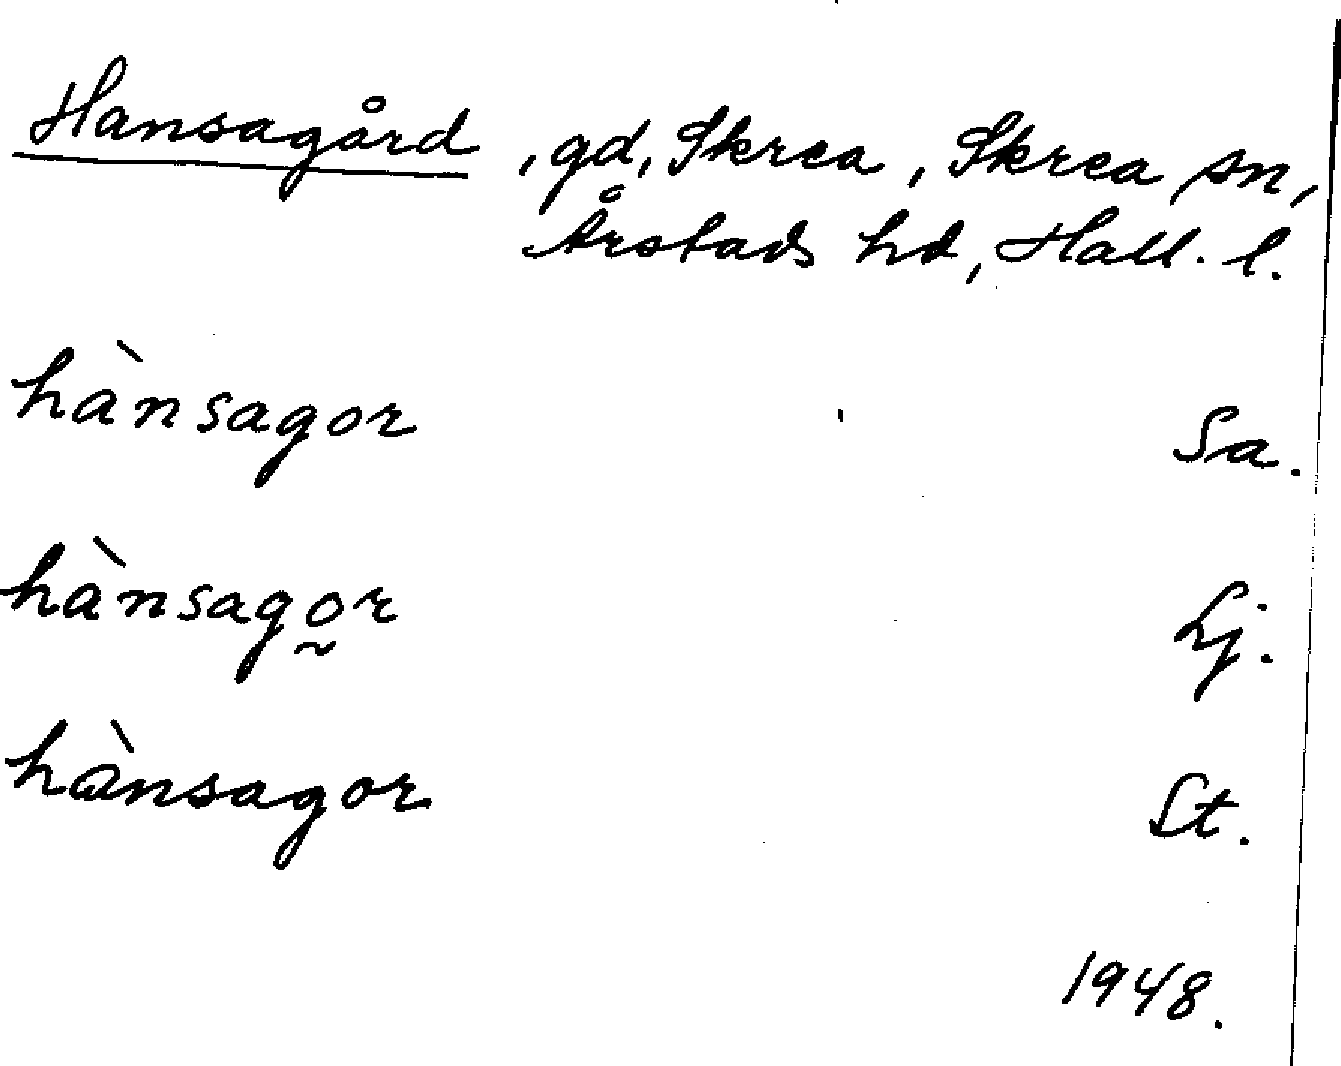 Hansagård, gd, Skrea, Skrea sn,
Årstads hd, Hall. l.
hànsagor Sa.
hànsago̰r Lj.
hànsagor St.
1948.